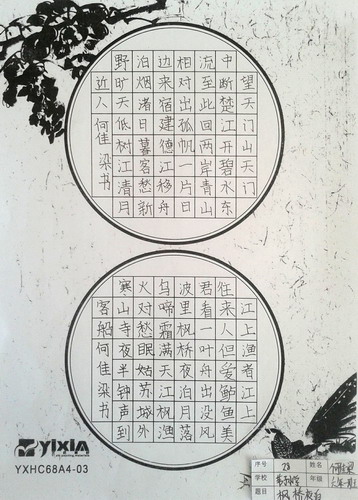 望天门山天门
中断楚江开碧水东
流至此回两岸青山
相对出孤帆一片日
边来宿建德江移舟
泊烟渚日暮客愁新
野旷天低树江清月
近人何佳梁书
江上渔者江上
往来人但爱鲈鱼美
君看一叶舟出没风
波里枫桥夜泊月落
乌啼霜满天江枫渔
火对愁眠姑苏城外
寒山寺夜半钟声到
客船何佳梁书
YIXIA
YXHC68A4-03
序号 28 姓名 何佳梁
学校 年级
题目 枫桥夜泊